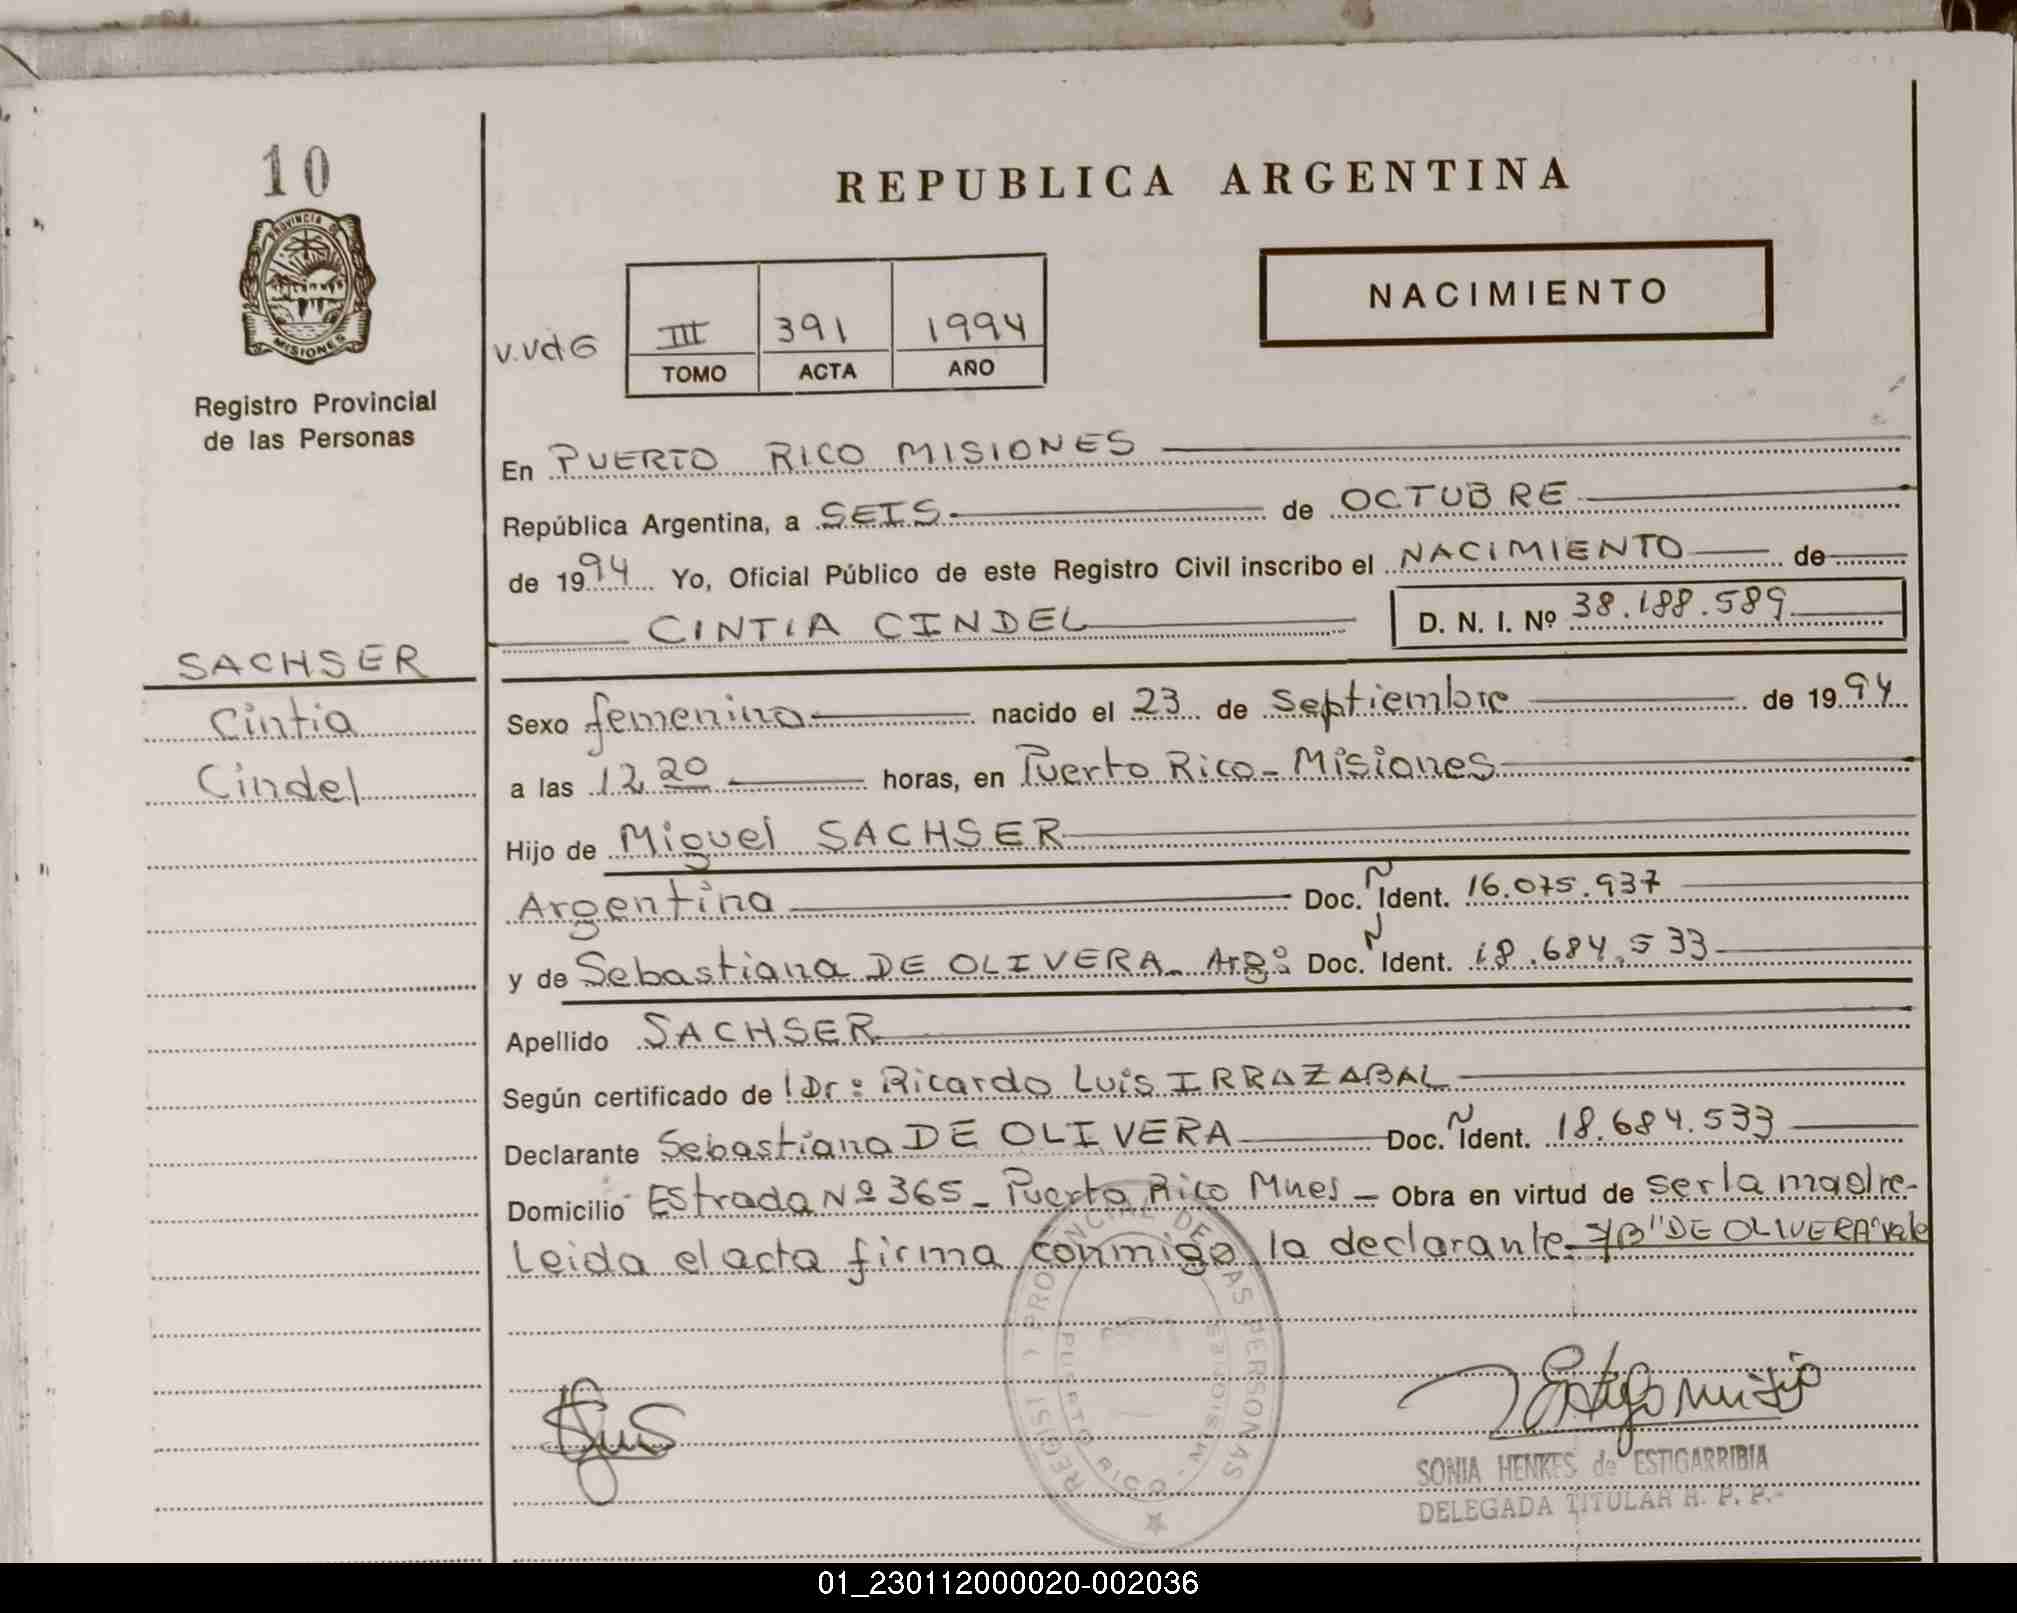 10
REPUBLICA ARGENTINA
PROVINCIA DE
MISIONES
NACIMIENTO
V.VdG
III 391 1994
TOMO ACTA AÑO
Registro Provincial
de las Personas
En PUERTO RICO MISIONES
República Argentina, a SEIS de OCTUBRE
de 1994 Yo, Oficial Público de este Registro Civil inscribo el NACIMIENTO de
CINTIA CINDEL D. N. I. Nº 38.188.589
SACHSER
Cintia
Cindel
Sexo femenino nacido el 23 de Septiembre de 1994
a las 12,20 horas, en Puerto Rico - Misiones
Hijo de Miguel SACHSER
Argentina Doc. Ident. 16.075.937
y de Sebastiana DE OLIVERA. Arg: Doc. Ident. 18.684.533
Apellido SACHSER
Según certificado de Dr: Ricardo Luis IRRAZABAL
Declarante Sebastiana DE OLIVERA Doc. Ident. 18.684.533
Domicilio Estrada Nº 365 - Puerto Rico Mnes - Obra en virtud de ser la madre-
Leida el acta firma conmigo la declarante "DE OLIVERA" vale
PROVINCIAL DE LAS PERSONAS
PUERTO RICO - MISIONES
SONIA HENKES de ESTIGARRIBIA
DELEGADA TITULAR R. P. P.-
01_230112000020-002036